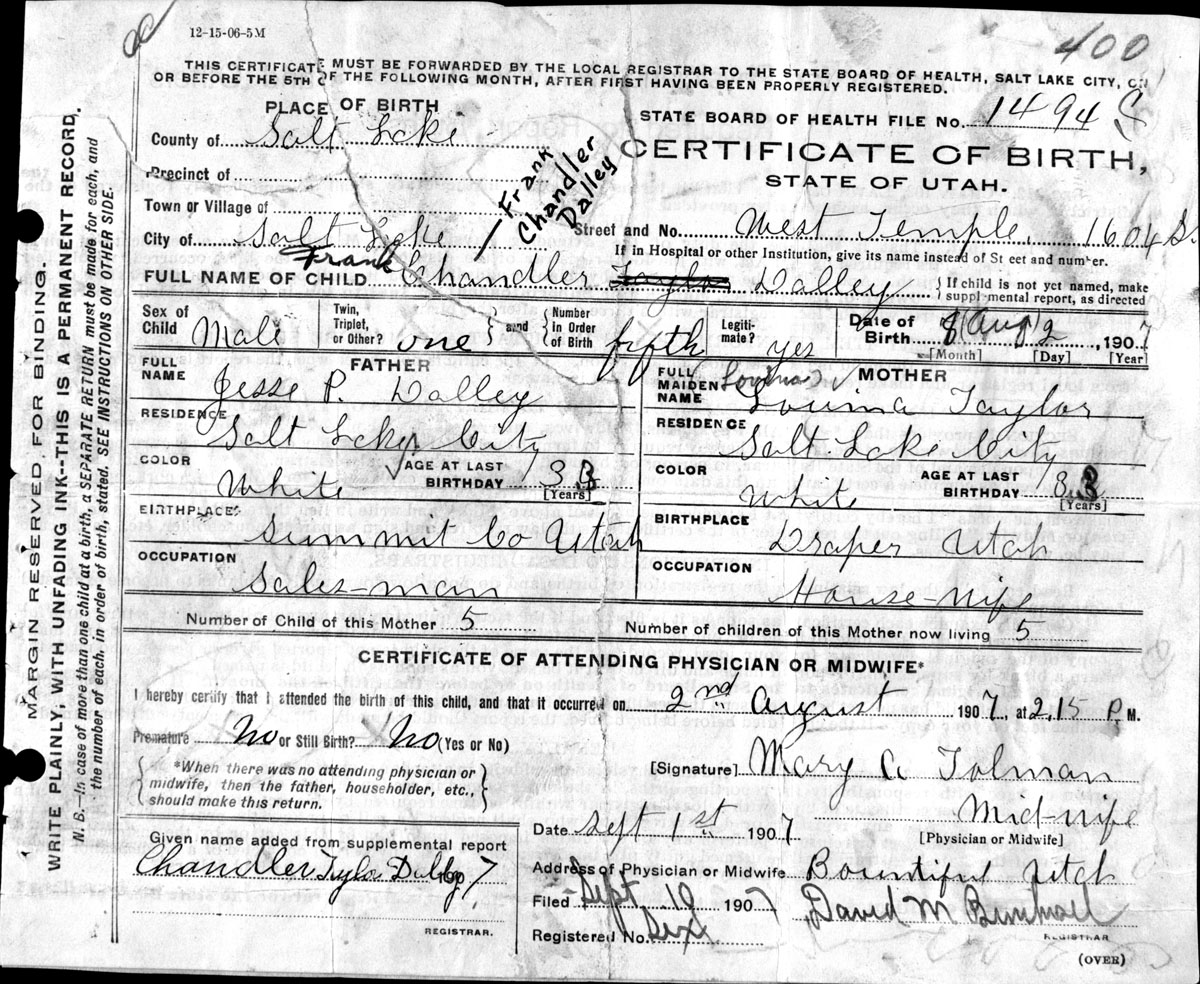 12-15-06-5M
400
THIS CERTIFICATE MUST BE FORWARDED BY THE LOCAL REGISTRAR TO THE STATE BOARD OF HEALTH, SALT LAKE CITY, ON
OR BEFORE THE 5TH OF THE FOLLOWING MONTH, AFTER FIRST HAVING BEEN PROPERLY REGISTERED.
MARGIN RESERVED FOR BINDING.
WRITE PLAINLY, WITH UNFADING INK--THIS IS A PERMANENT RECORD.
N. B.--In case of more than one child at a birth, a SEPARATE RETURN must be made for each, and
the number of each, in order of birth, stated. SEE INSTRUCTIONS ON OTHER SIDE.
PLACE OF BIRTH
STATE BOARD OF HEALTH FILE No. 1494
County of Salt Lake
CERTIFICATE OF BIRTH,
STATE OF UTAH.
Precinct of
Town or Village of
Frank
Chandler
Dalley
City of Salt Lake
Street and No. West Temple, 1604 So
If in Hospital or other Institution, give its name instead of Street and number.
FULL NAME OF CHILD Frank Chandler Taylor Dalley
If child is not yet named, make
supplemental report, as directed
Sex of Child Male
Twin, Triplet, or Other? one
and
Number in Order of Birth fifth
Legitimate? yes
Date of Birth 8 Aug 2 1907
[Month] [Day] [Year]
FATHER
FULL NAME Jesse P. Dalley
RESIDENCE Salt Lake City
COLOR White
AGE AT LAST BIRTHDAY 33
[Years]
BIRTHPLACE Summit Co Utah
OCCUPATION Sales-man
MOTHER
FULL MAIDEN NAME Louina Taylor
RESIDENCE Salt Lake City
COLOR White
AGE AT LAST BIRTHDAY
[Years]
BIRTHPLACE Draper Utah
OCCUPATION House-wife
Number of Child of this Mother 5
Number of children of this Mother now living 5
CERTIFICATE OF ATTENDING PHYSICIAN OR MIDWIFE*
I hereby certify that I attended the birth of this child, and that it occurred on 2nd August 1907, at 2,15 P. M.
Premature No or Still Birth? No (Yes or No)
*When there was no attending physician or
midwife, then the father, householder, etc.,
should make this return.
[Signature] Mary A Tolman
Mid-wife
[Physician or Midwife]
Date Sept 1st 1907
Given name added from supplemental report
Chandler Taylor Dalley 190 7
REGISTRAR.
Address of Physician or Midwife Bountiful Utah
Filed Sept 10 1907
David M
REGISTRAR
Registered No. Six
(OVER)